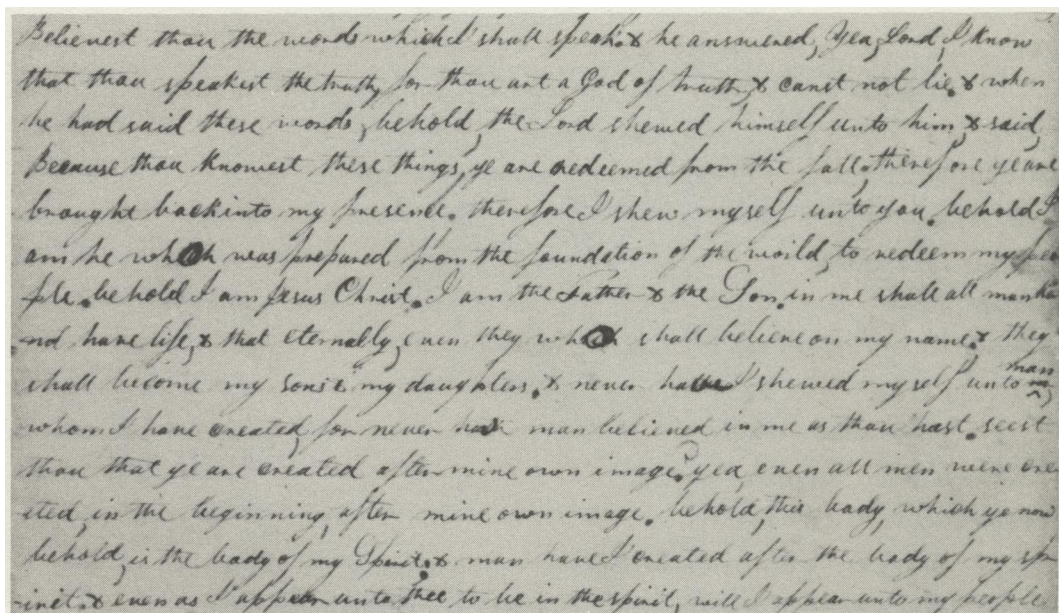 Believest thou the words which I shall speak. & he answered, Yea, Lord, I know
that thou speakest the truth, for thou art a God of truth, & canst not lie. & when
he had said these words, behold, the Lord shewed himself unto him, & said,
Because thou knowest these things, ye are redeemed from the fall, therefore ye are
brought back into my presence. therefore I shew myself unto you. behold I
am he who was prepared from the foundation of the world, to redeem my peo
ple. behold I am Jesus Christ. I am the Father & the Son. in me shall all manki
nd have life, & that eternally, even they who shall believe on my name. & they
shall become my sons & my daughters. & never have I shewed myself unto man
whom I have created, for never has man believed in me as thou hast. seest
thou that ye are created after mine own image? yea, even all men were cre
ated, in the beginning, after mine own image. behold, this body, which ye now
behold, is the body of my Spirit. & man have I created after the body of my sp
irit. & even as I appear unto thee to be in the spirit, will I appear unto my people